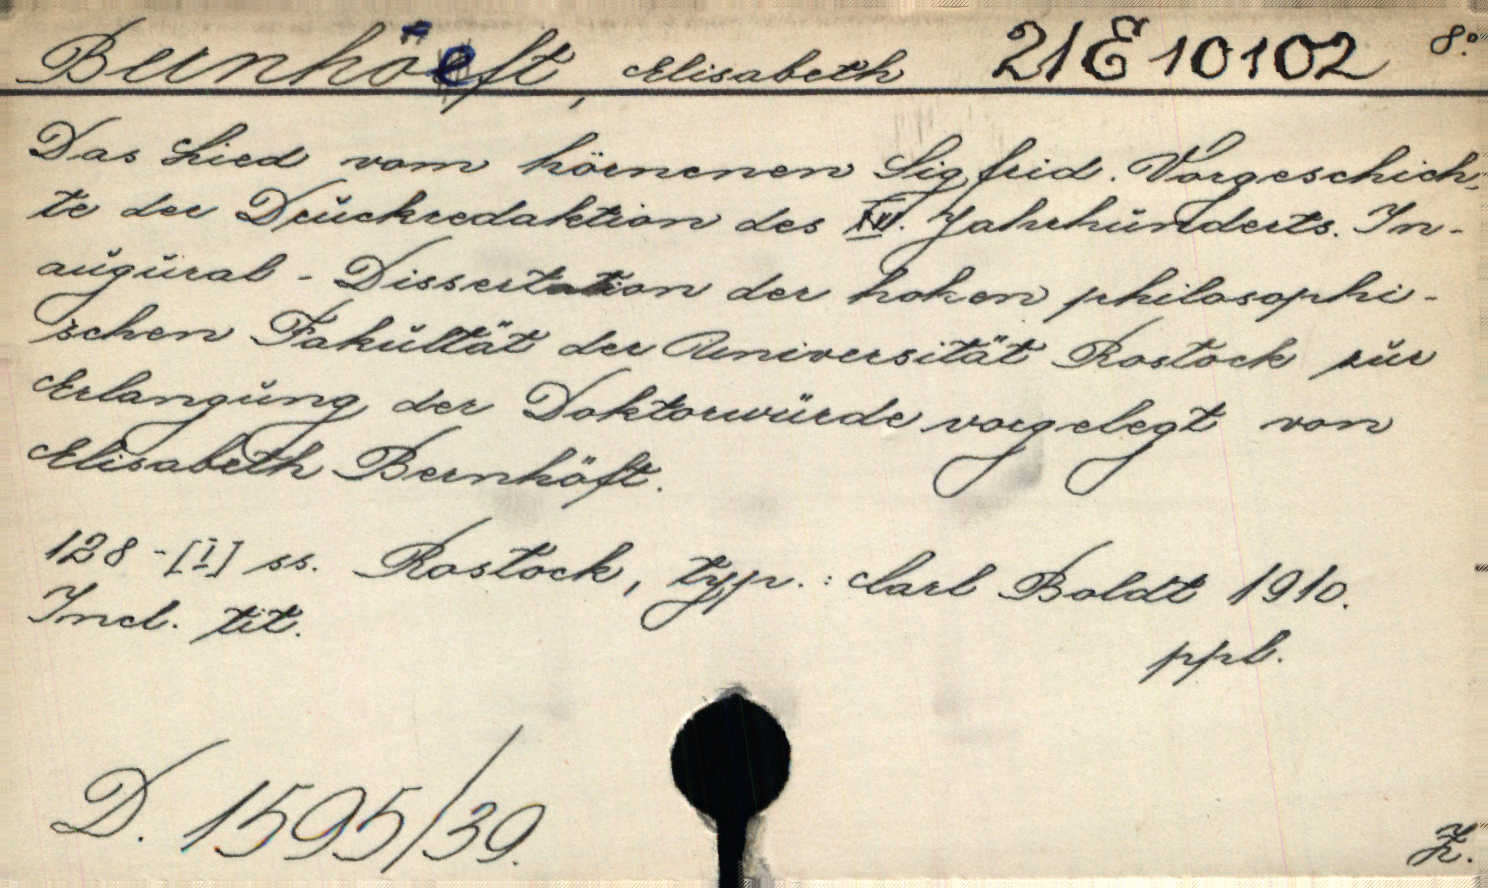 Bernhöeft, Elisabeth 21 E 10102 8°.
Das Lied vom hörnenen Sigfrid. Vorgeschich-
te der Druckredaktion des XVI. Jahrhunderts. In-
augural-Dissertation der hohen philosophi-
schen Fakultät der Universität Rostock zur
Erlangung der Doktorwürde vorgelegt von
Elisabeth Bernhöft.
128-[I] ss. Rostock, typ.: Carl Boldt 1910.
Incl. tit.
ppl.
D. 1595/39.